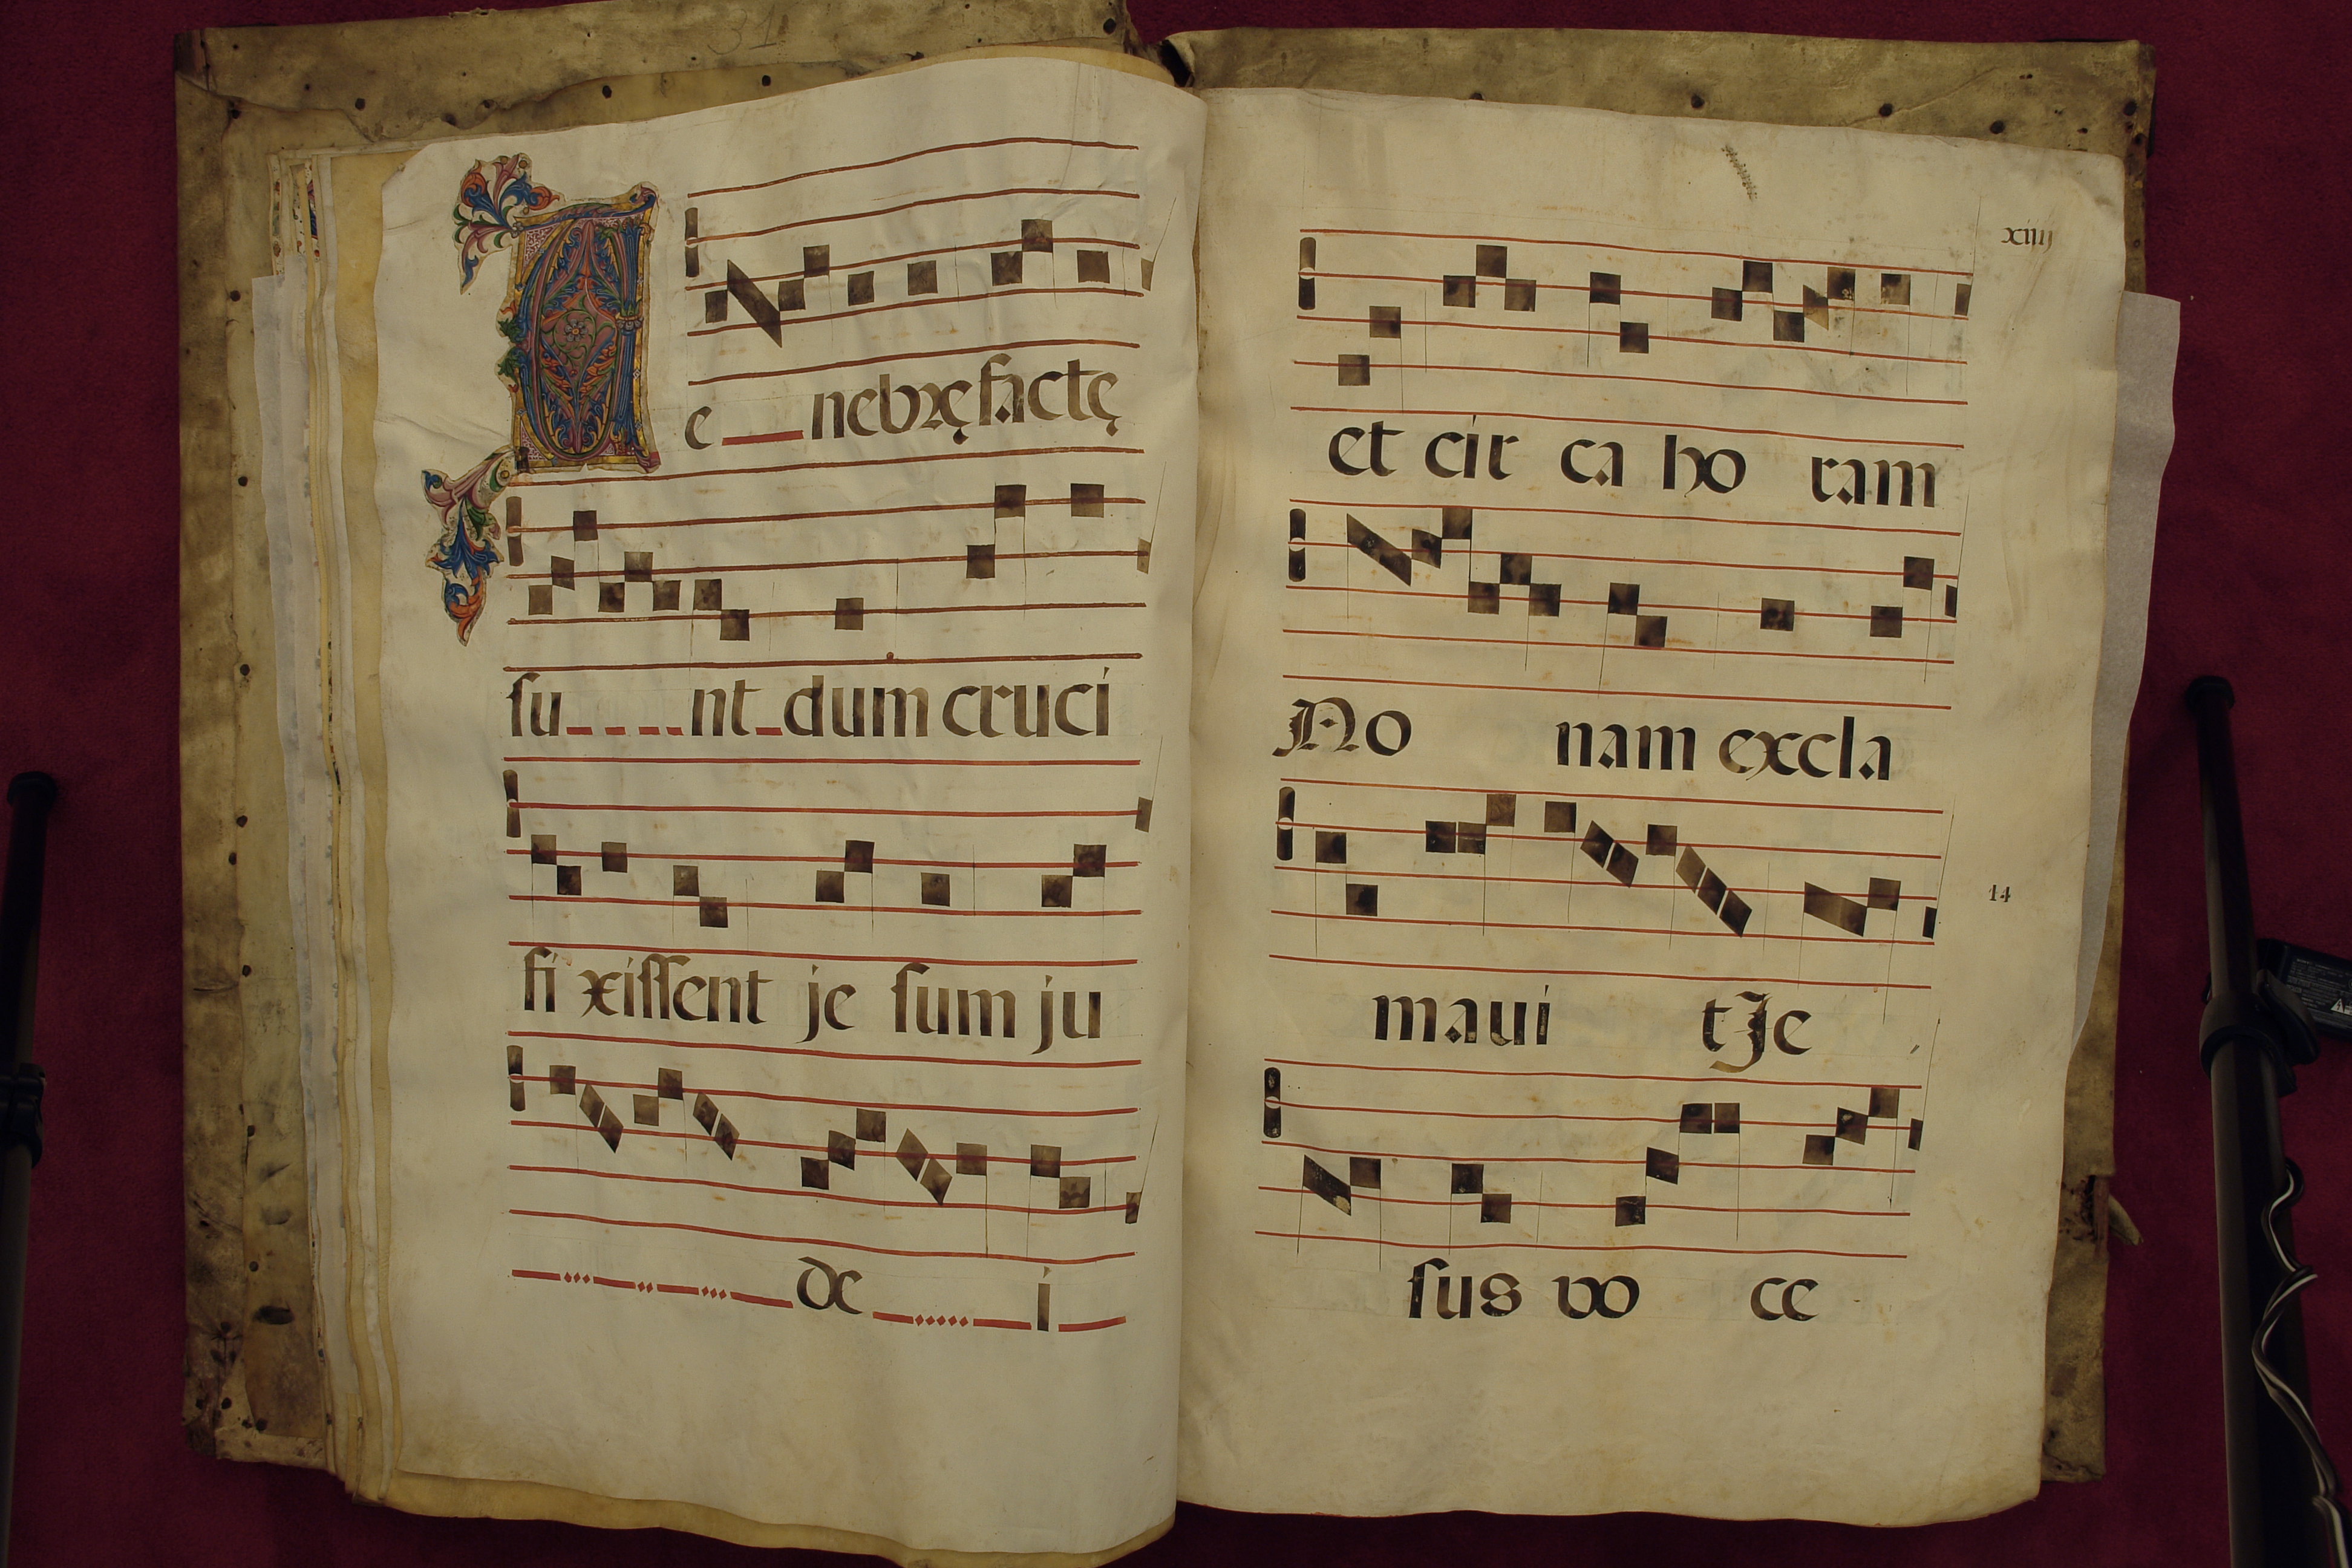 31
Te nebrę factę
su nt dum cruci
fi xissent je sum ju
de i
xiiij
et cir ca ho ram
No nam excla
14
maui t Je
sus vo ce